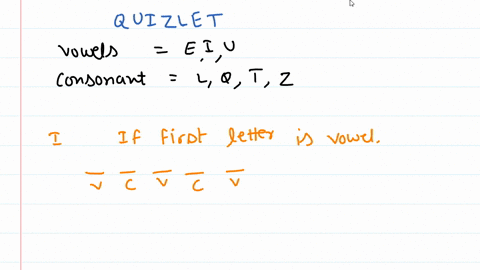 QUIZLET
vowels = E, I, U
consonant = L, Q, T, Z
I If first letter is vowel.
V C V C V